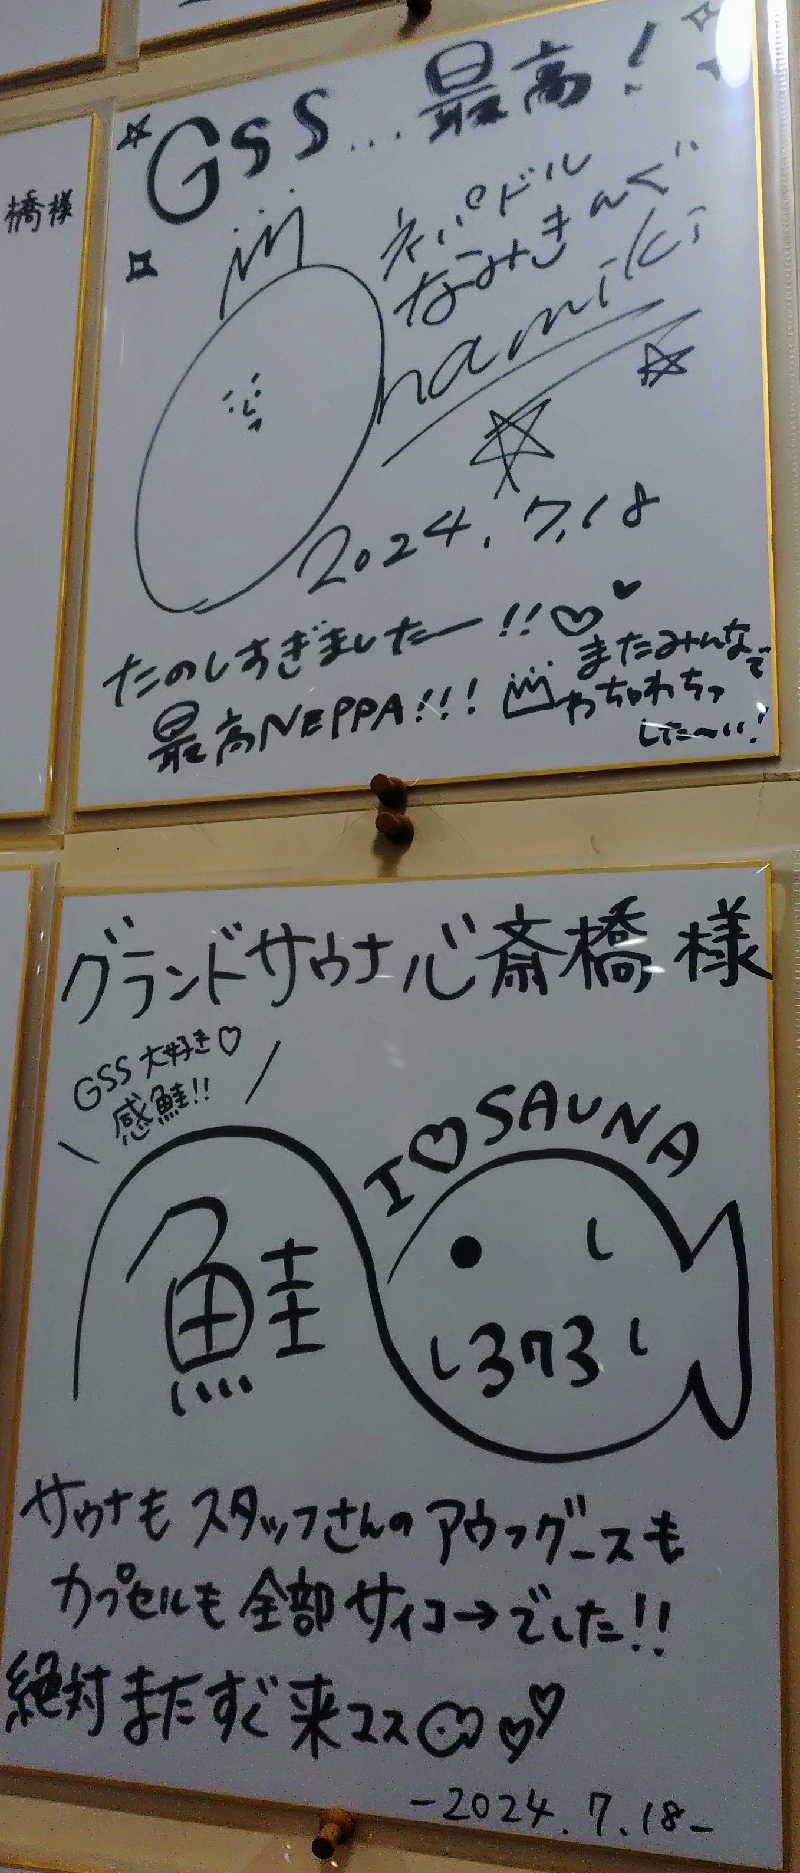 橋様
GSS...最高!
ネッパドル
なみきんぐ
namiki
2024.7.18
たのしすぎましたー!!♡♥
最高NEPPA!!!
またみんなで
わちゃわちゃ
したーい!
グランドサウナ心斎橋様
GSS大好き♡
感鮭!!
I♡SAUNA
鮭
し
し373し
サウナもスタッフさんのアウフグースも
カプセルも全部サイコー→でした!!
絶対またすぐ来コス
-2024.7.18-